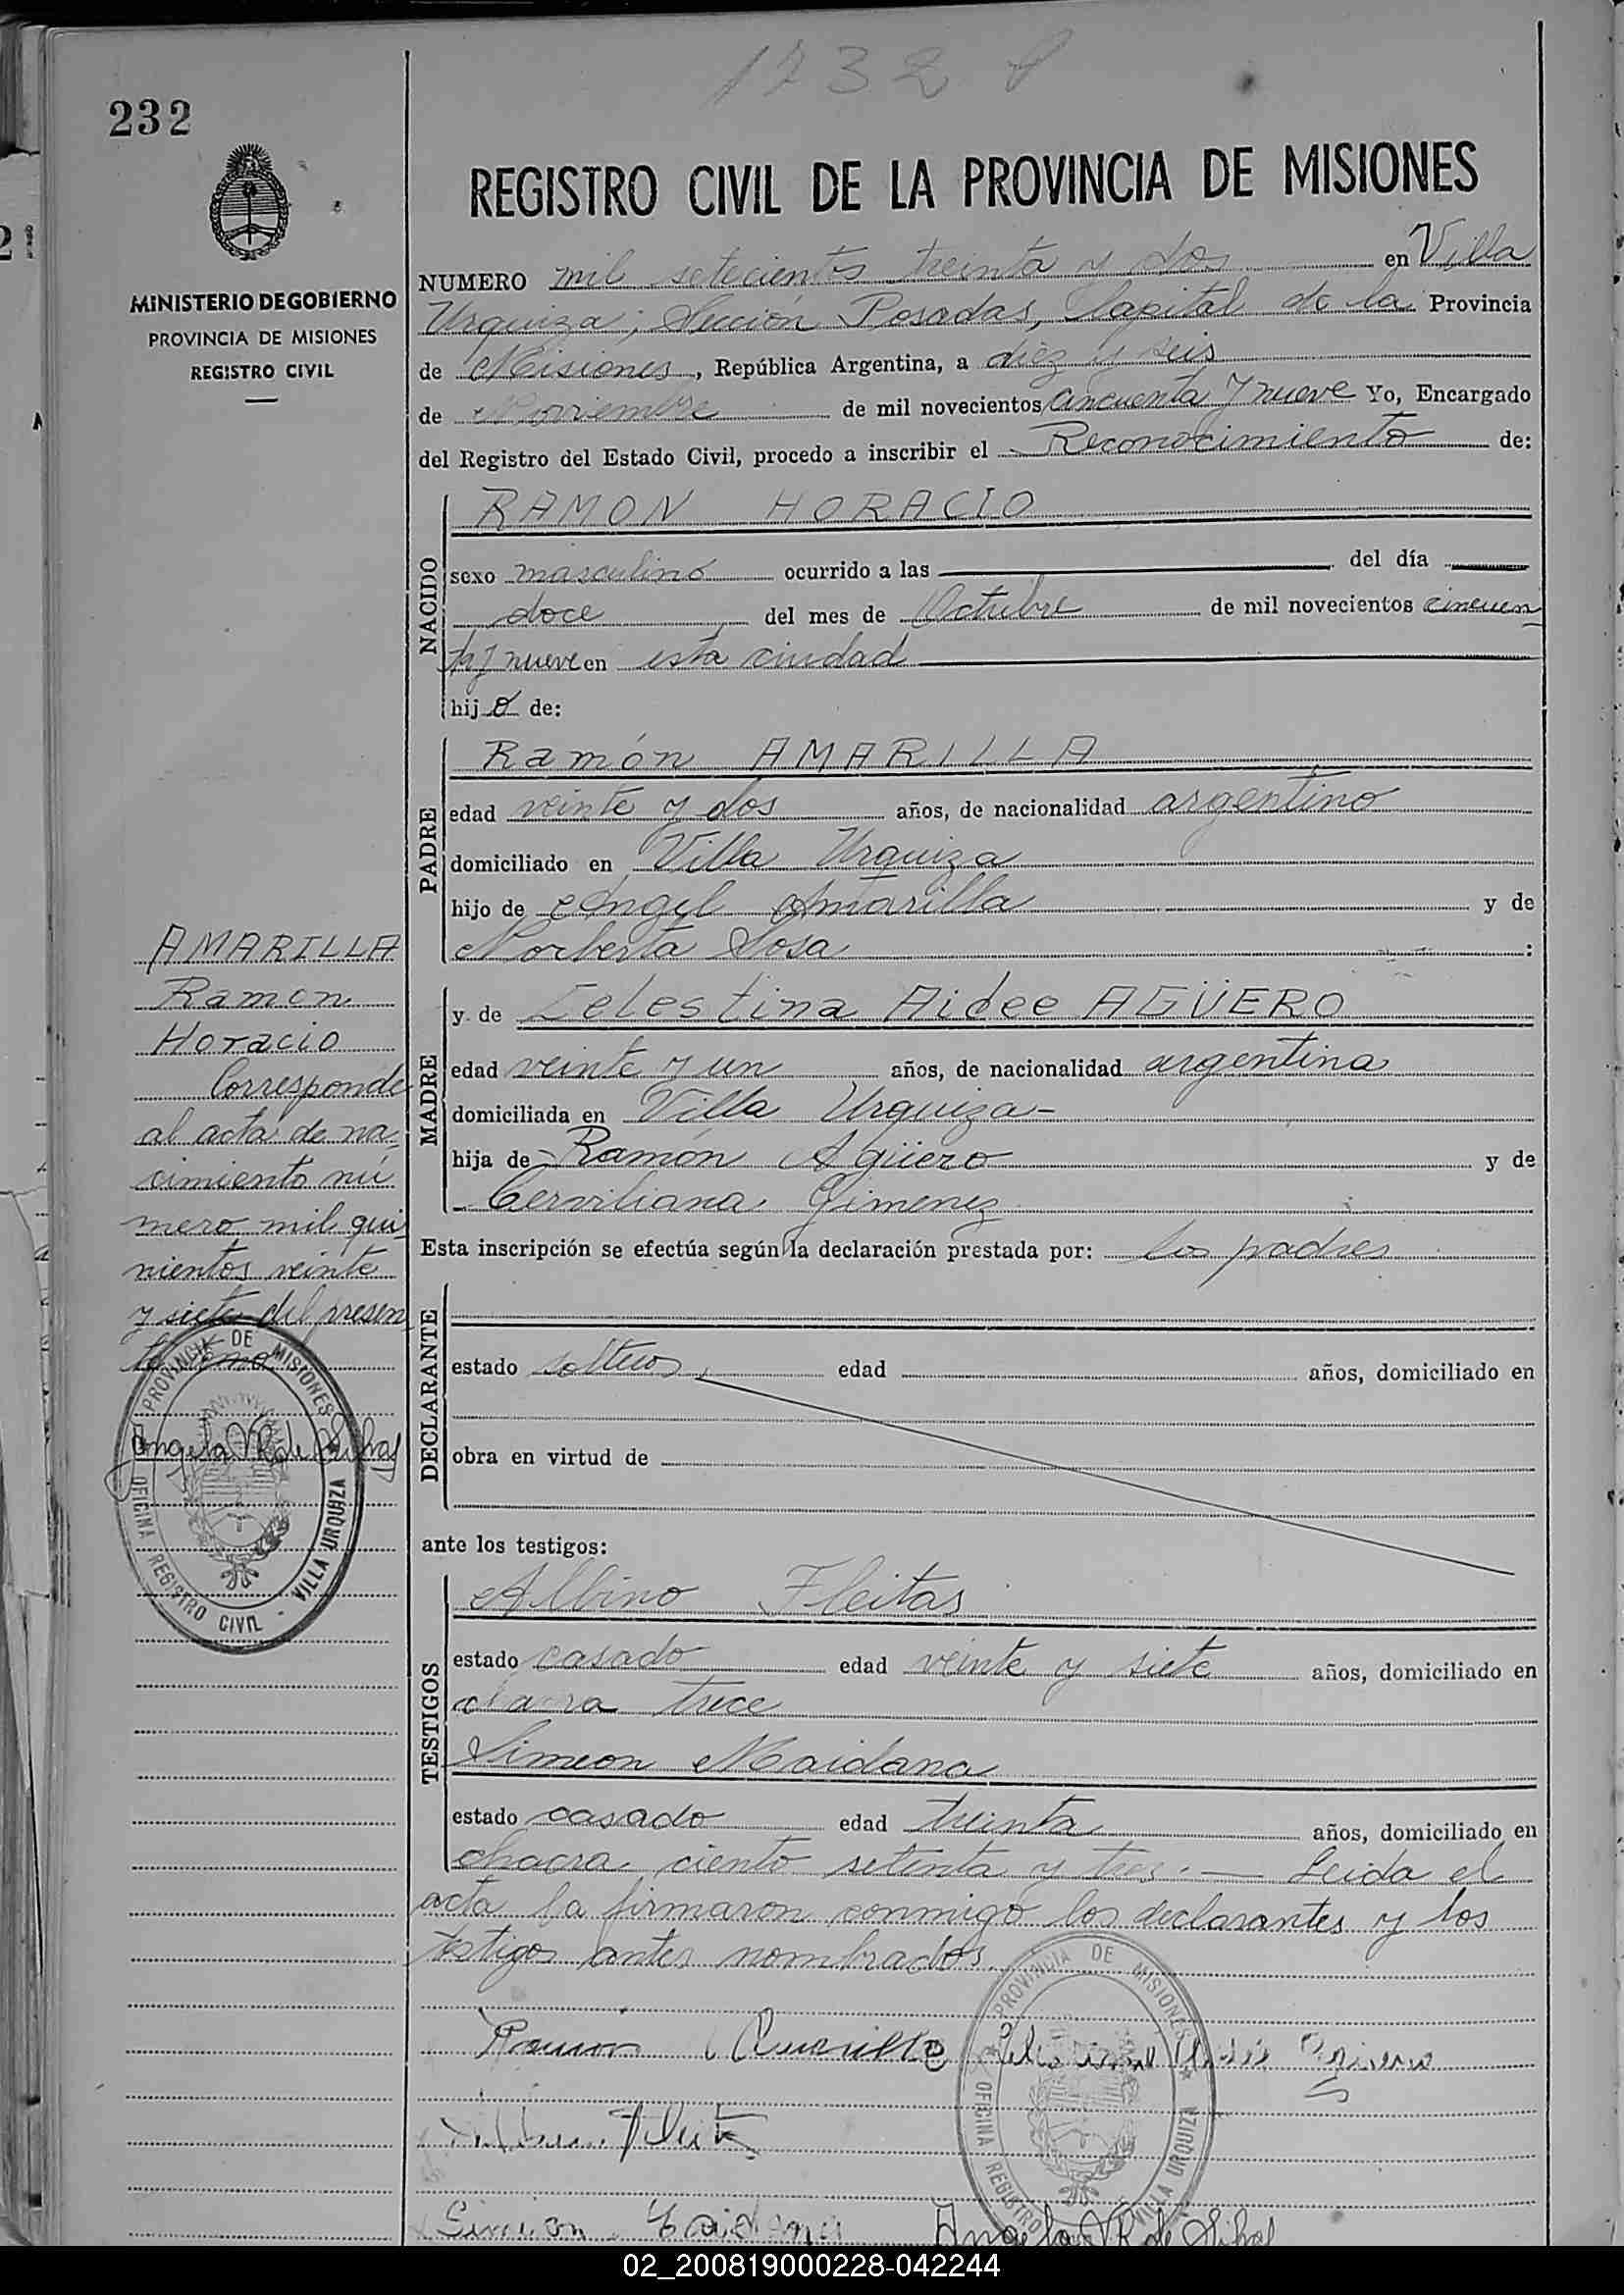 1732
232
REGISTRO CIVIL DE LA PROVINCIA DE MISIONES
MINISTERIO DE GOBIERNO
PROVINCIA DE MISIONES
REGISTRO CIVIL
NUMERO mil setecientos treinta y dos en Villa
Urquiza, Sección Posadas, Capital de la Provincia
de Misiones, República Argentina, a diez y seis
de Noviembre de mil novecientos cincuenta y nueve Yo, Encargado
del Registro del Estado Civil, procedo a inscribir el Reconocimiento de:
NACIDO
RAMON HORACIO
sexo masculino ocurrido a las del día
doce del mes de Octubre de mil novecientos cincuen
ta y nueve en esta ciudad
hijo de:
PADRE
Ramón AMARILLA
edad veinte y dos años, de nacionalidad argentino
domiciliado en Villa Urquiza
hijo de Angel Amarilla y de
Norberta Sosa :
MADRE
y de Celestina Aidee AGÜERO
edad veinte y un años, de nacionalidad argentina
domiciliada en Villa Urquiza-
hija de Ramón Agüero y de
Cerviliana Gimenez
Esta inscripción se efectúa según la declaración prestada por: los padres
DECLARANTE
estado solteros, edad años, domiciliado en
obra en virtud de
ante los testigos:
TESTIGOS
Albino Fleitas
estado casado edad veinte y siete años, domiciliado en
trece
Simeon Maidana
estado casado edad treinta años, domiciliado en
chacra ciento setenta y tres.- Leida el
acta la firmaron conmigo los declarantes y los
testigos antes nombrados
Ramón Amarilla
AMARILLA
Ramon
Horacio
Corresponde
al acta de na-
cimiento nú
mero mil qui
nientos veinte
y siete del presen
te tomo
PROVINCIA DE MISIONES
OFICINA REGISTRO CIVIL - VILLA URQUIZA
PROVINCIA DE MISIONES
OFICINA REGISTRO VILLA URQUIZA
02_200819000228-042244